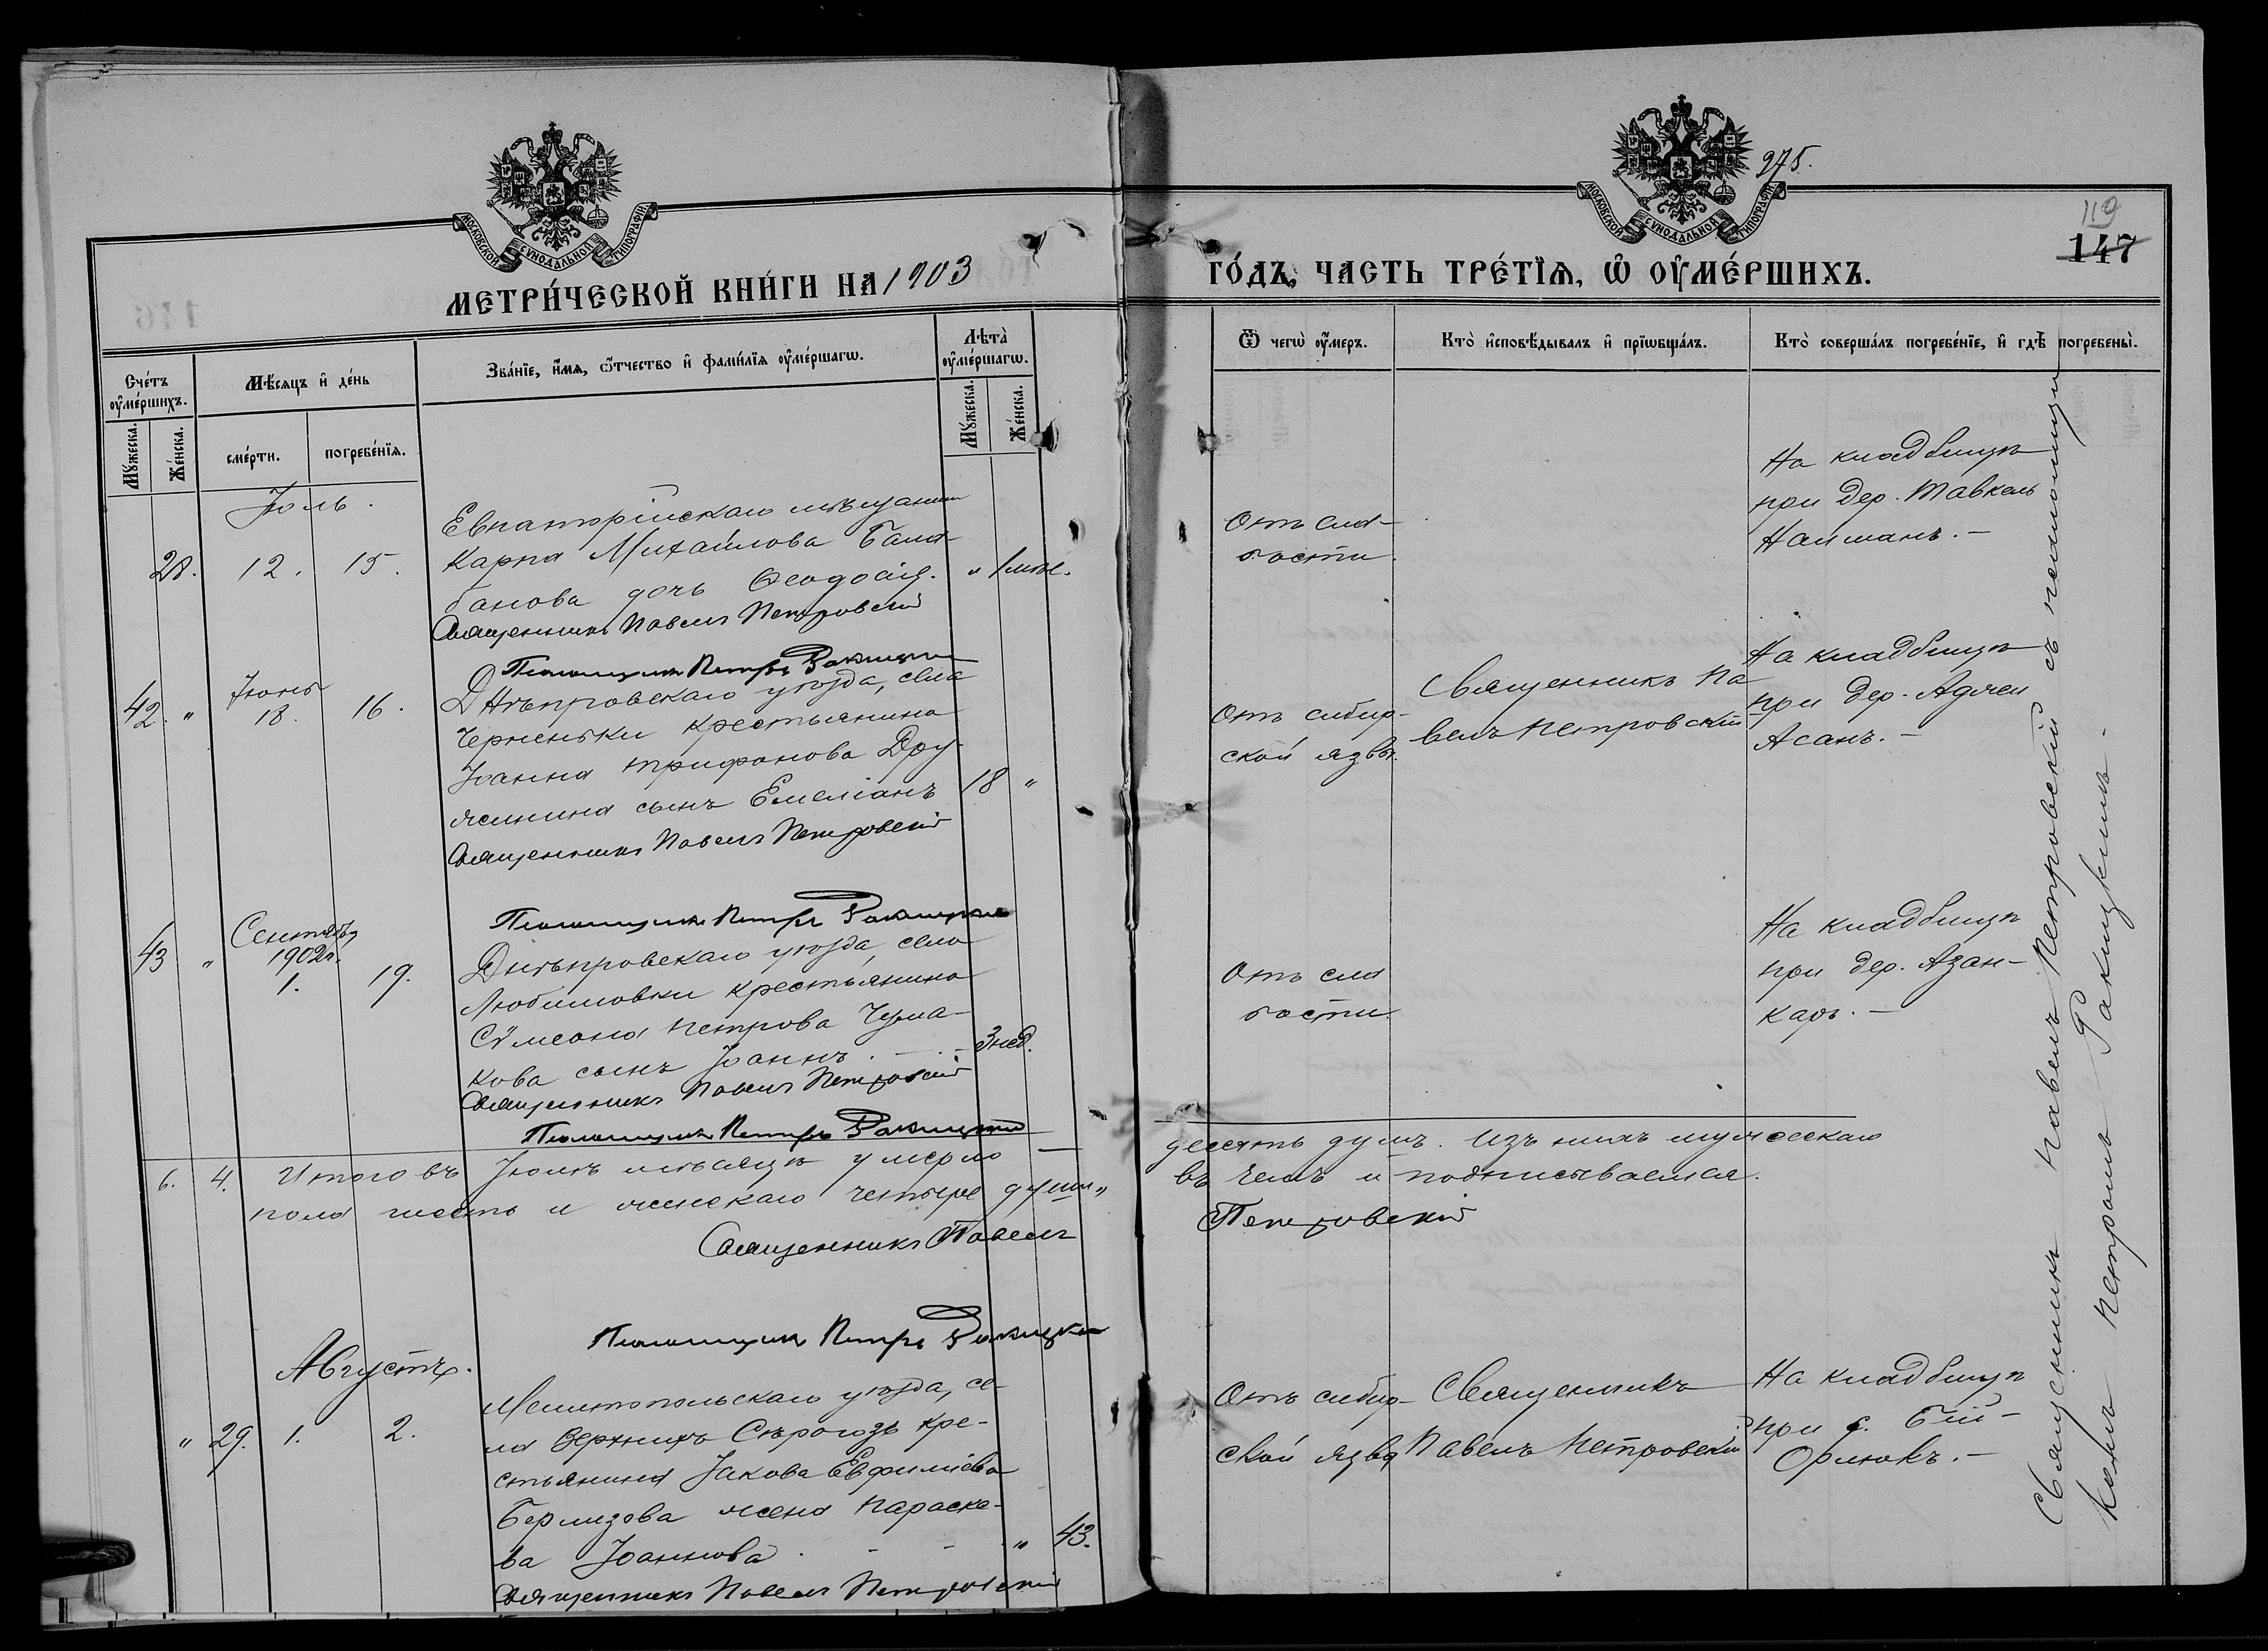 МОСКОВСКОЙ СѴНОДАЛЬНОЙ ТИПОГРАФІИ.
МЕТРИ́ЧЕСКОЙ КНИ́ГИ НА 1903
Сче́тъ оу҆ме́ршихъ.
Мꙋ́жеска.
Же́нска.
Мѣ́сяцъ и҆ де́нь
сме́рти.
погребе́нїя.
Зва́нїе, и҆́мя, ѻ҆́тчество и҆ фами́лїя оу҆ме́ршагѡ.
Лѣ̑та̀ оу҆ме́ршагѡ.
Мꙋ́жеска.
Же́нска.
Іюль.
28. 12. 15.
Евпаторійскаго мѣщанина
Карпа Михайлова Бала-
банова дочь Ѳеодосія. " 1 мѣс.
Священникъ Павелъ Петровскій
Псаломщикъ Петръ Ракицкій
42. " Іюнь 18. 16.
Днѣпровскаго уѣзда, села
Черненьки крестьянина
Іоанна Трифонова Дру-
жинина сынъ Емеліанъ 18 "
Священникъ Павелъ Петровскій
Псаломщикъ Петръ Ракицкій
43 " Сентябрь
1902 г.
1. 19.
Днѣпровскаго уѣзда, села
Любимовки крестьянина
Сѵмеона Петрова Чума-
кова сынъ Іоаннъ. — . — 3 нед.
Священникъ Павелъ Петровскій
Псаломщикъ Петръ Ракицкій
6. 4. Итого въ Іюлѣ мѣсяцѣ умерло —
пола шесть и женскаго четыре души"
Священникъ Павелъ
Псаломщикъ Петръ Ракицкій
Августъ.
" 29. 1. 2.
Мелитопольскаго уѣзда, се-
ла Верхнихъ Сѣрогозъ кре-
стьянина Іакова Евфиміева
Бермизова жена Параске-
ва Іоаннова. - - " 43.
Священникъ Павелъ Петровскій
275.
МОСКОВСКОЙ СѴНОДАЛЬНОЙ ТИПОГРАФІИ.
119
147
ГО́ДЪ, ЧАСТЬ ТРЕ́ТЇЯ, Ѡ҆ ОУ҆МЕ́РШИХЪ.
Ѿ чегѡ̀ оу҆́меръ.
Кто̀ и҆сповѣ́дывалъ и҆ прїѡбща́лъ.
Кто̀ соверша́лъ погребе́нїе, и҆ гдѣ̀ погребены̀.
Отъ сла-
бости.
На кладбищѣ
при дер. Тавкель
Найманъ. —
Отъ сибир-
ской язвы.
Священникъ Па
велъ Петровскій
На кладбищѣ
при дер. Аджи
Асанъ. —
Отъ сла
бости.
На кладбищѣ
при дер. Азан-
каръ. —
десять душъ. Изъ нихъ мужескаго
въ чемъ и подписываемся.
Петровскій
Отъ сибир-
ской язвы
Священникъ
Павелъ Петровскій
На кладбищѣ
при с. Бій —
Орлюкъ. —
Священникъ Павелъ Петровскій съ псаломщи
комъ Петромъ Ракицкимъ. —